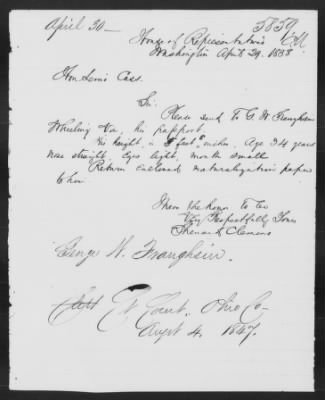 April 30 — 5859
House of Representatives
Washington April 29. 1858
Hon Lewis Cass.
Sir:
Please send to G. W. Franzheim
Wheeling Va, his passport
His height, is 5 feet 8 inches, Age 34 years
nose straight, Eyes light, mouth small
Return enclosed naturalization papers
to him
I have the honor to be
Very Respectfully Yours
Sherrard Clemens
George W. Franzheim.
Ct Court, Ohio Co—
Augst 4. 1847.